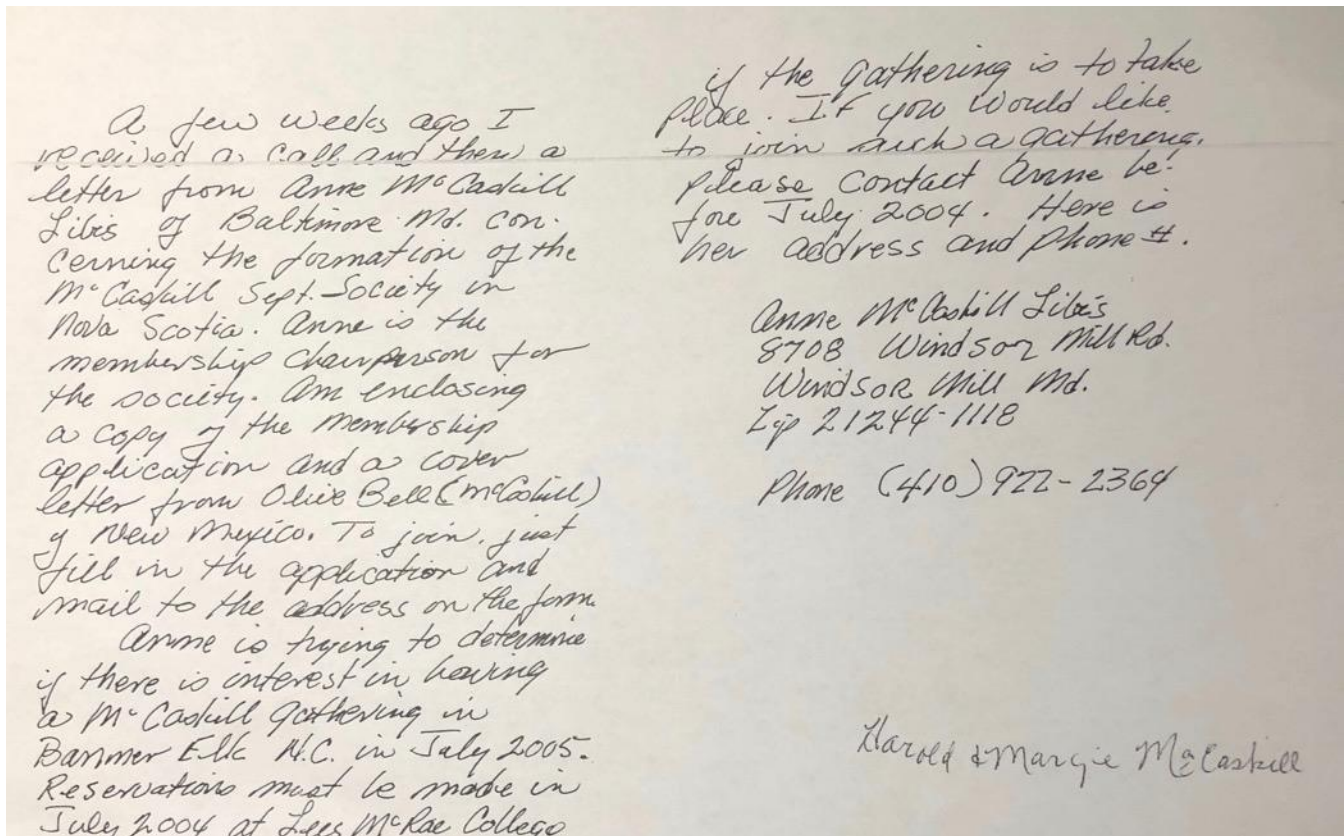 A few weeks ago I
received a call and then a
letter from Anne McCaskill
Libis of Baltimore Md. con-
cerning the formation of the
McCaskill Sept. Society in
Nova Scotia. Anne is the
membership chairperson for
the society. Am enclosing
a copy of the membership
application and a cover
letter from Olive Bell (McCaskill)
of New Mexico. To join, just
fill in the application and
mail to the address on the form.
Anne is trying to determine
if there is interest in having
a McCaskill gathering in
Banner Elk N.C. in July 2005.
Reservations must be made in
July 2004 at Lees McRae College
if the gathering is to take
place. If you would like
to join such a gathering,
please contact Anne be-
fore July 2004. Here is
her address and phone #.
Anne McCaskill Libis
8708 Windsor Mill Rd.
Windsor Mill Md.
Zip 21244-1118
Phone (410) 922-2364
Harold & Margie McCaskill